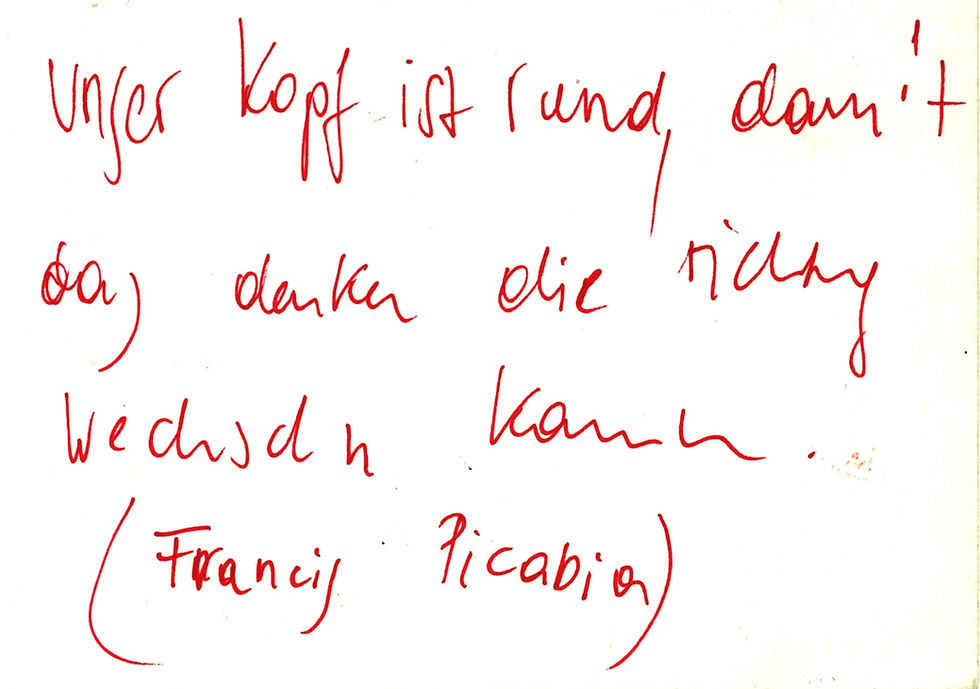 unser Kopf ist rund, damit
das denken die richtung
wechseln kann.
(Francis Picabia)